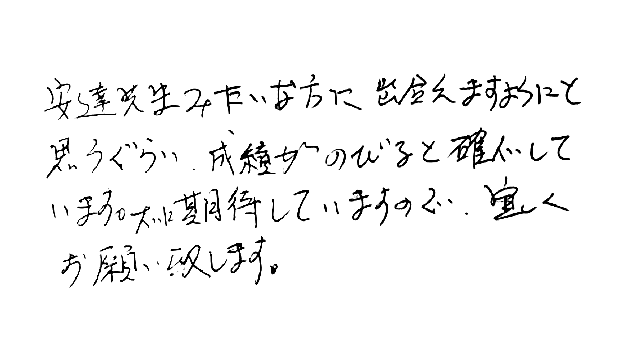 安達先生みたいな方に出会えますようにと
思うぐらい、成績がのびると確信して
います。大いに期待していますので、宜しく
お願い致します。